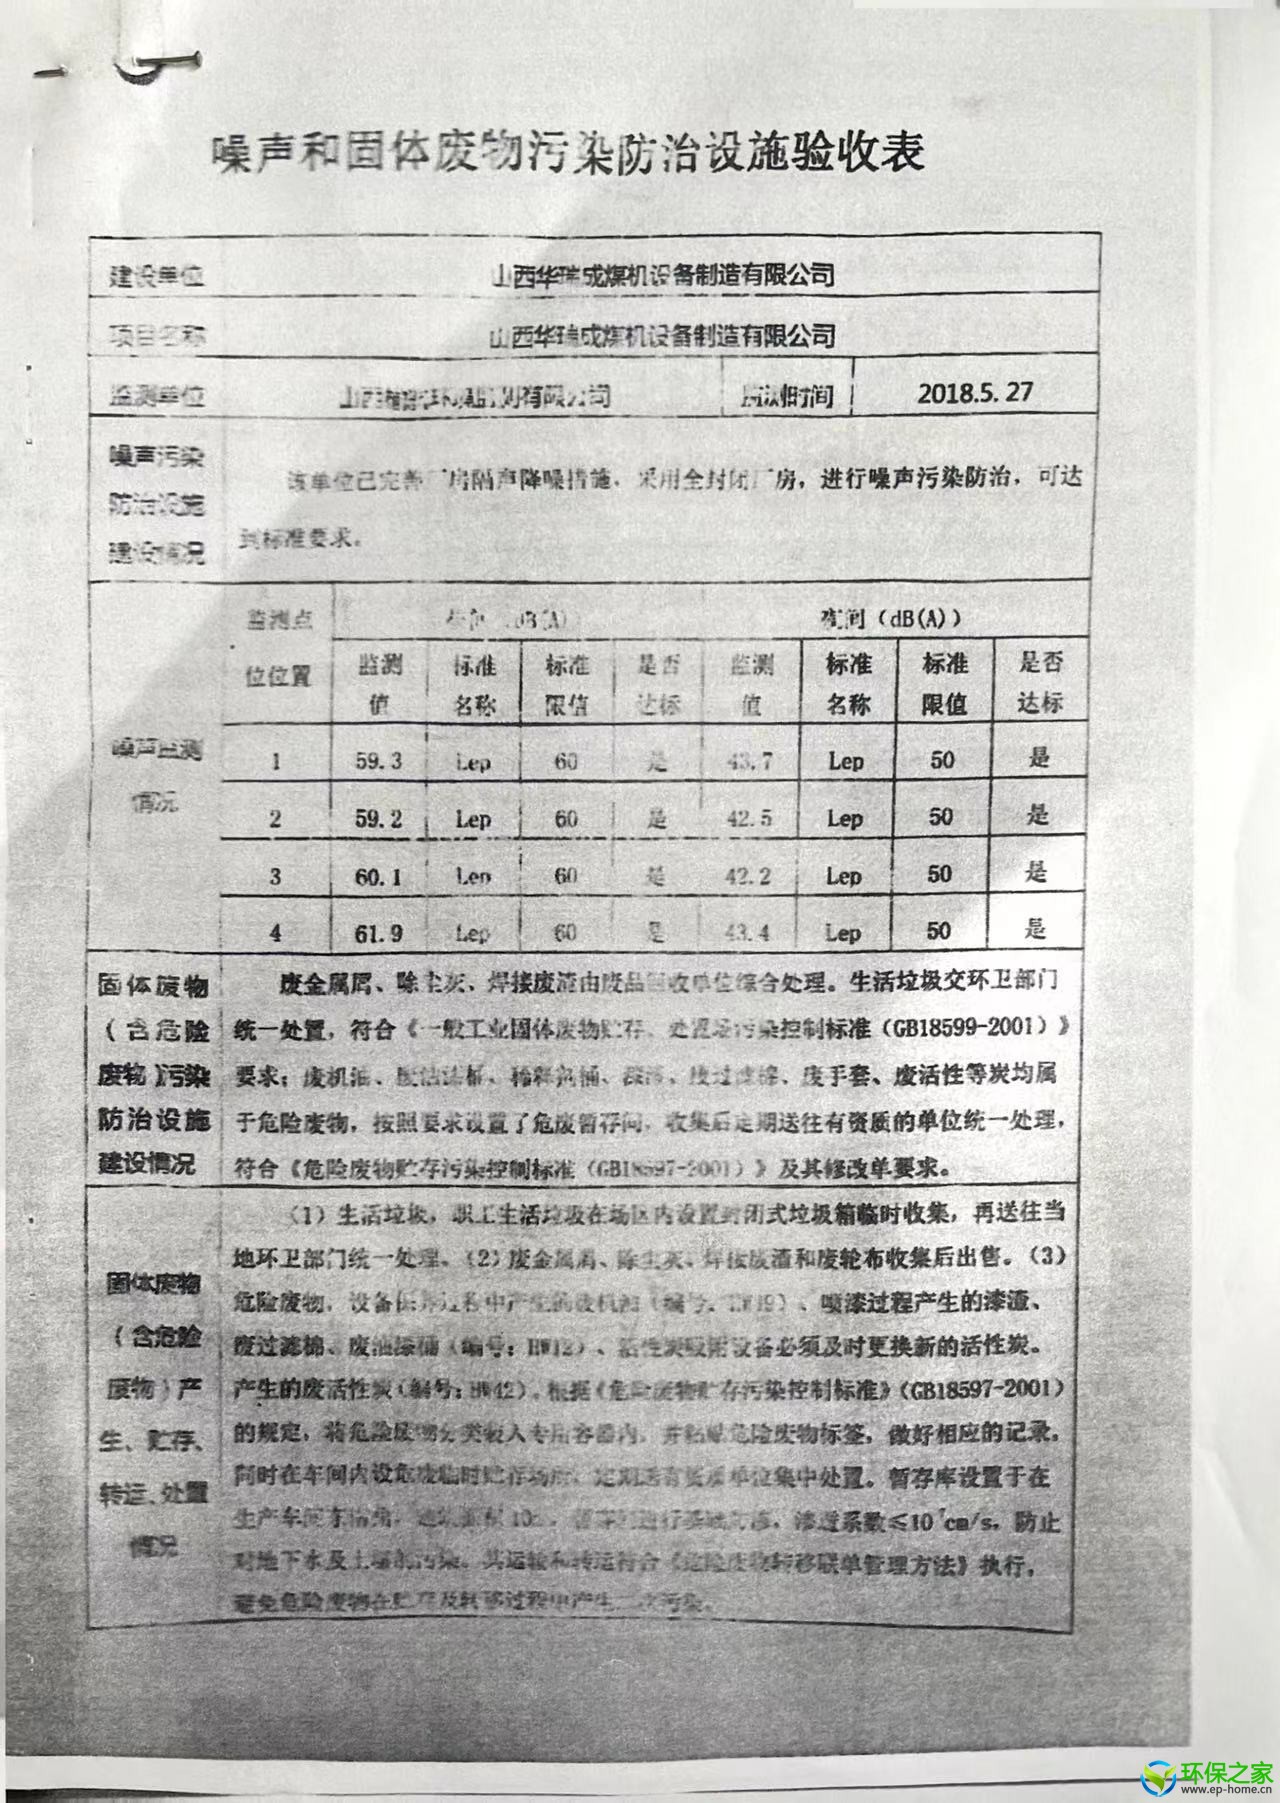 噪声和固体废物污染防治设施验收表
建设单位 山西华瑞成煤机设备制造有限公司
项目名称 山西华瑞成煤机设备制造有限公司
监测单位 山西 有限公司 监测时间 2018.5.27
噪声污染
防治设施
建设情况
该单位已完善厂房隔声降噪措施，采用全封闭厂房，进行噪声污染防治，可达
到标准要求。
噪声监测
情况
监测点
位位置
昼间（dB(A)） 夜间（dB(A)）
监测值 标准名称 标准限值 是否达标 监测值 标准名称 标准限值 是否达标
1 59.3 Lep 60 是 43.7 Lep 50 是
2 59.2 Lep 60 是 42.5 Lep 50 是
3 60.1 Lep 60 是 42.2 Lep 50 是
4 61.9 Lep 60 是 43.4 Lep 50 是
固体废物
（含危险
废物）污染
防治设施
建设情况
废金属屑、除尘灰、焊接废渣由废品回收单位综合处理。生活垃圾交环卫部门
统一处置，符合《一般工业固体废物贮存、处置场污染控制标准（GB18599-2001）》
要求；废机油、 、废过滤棉、废手套、废活性等炭均属
于危险废物，按照要求设置了危废暂存间，收集后定期送往有资质的单位统一处理，
符合《危险废物贮存污染控制标准（GB18597-2001）》及其修改单要求。
固体废物
（含危险
废物）产
生、贮存、
转运、处置
情况
（1）生活垃圾，职工生活垃圾在场区内设置封闭式垃圾箱临时收集，再送往当
地环卫部门统一处理。（2）废金属屑、除尘灰、焊接废渣和废轮布收集后出售。（3）
危险废物，设备保养过程中产生的废机油（编号： ）、喷漆过程产生的漆渣、
废过滤棉、废油漆桶（编号：HW12）、活性炭吸附设备必须及时更换新的活性炭。
产生的废活性炭（编号：HW42）。根据《危险废物贮存污染控制标准》（GB18597-2001）
的规定，将危险废物分类装入专用容器内，并粘贴危险废物标签，做好相应的记录。
同时在车间内设危废临时贮存场所，定期送有资质单位集中处置。暂存库设置于在
生产车间东 ， 面积10 ， 进行 ，渗透系数≤10 cm/s，防止
对地下水及土壤的污染。其运输和转运符合《危险废物转移联单管理方法》执行，
避免危险废物在贮存及转移过程中产生二次污染。
环保之家
www.ep-home.cn